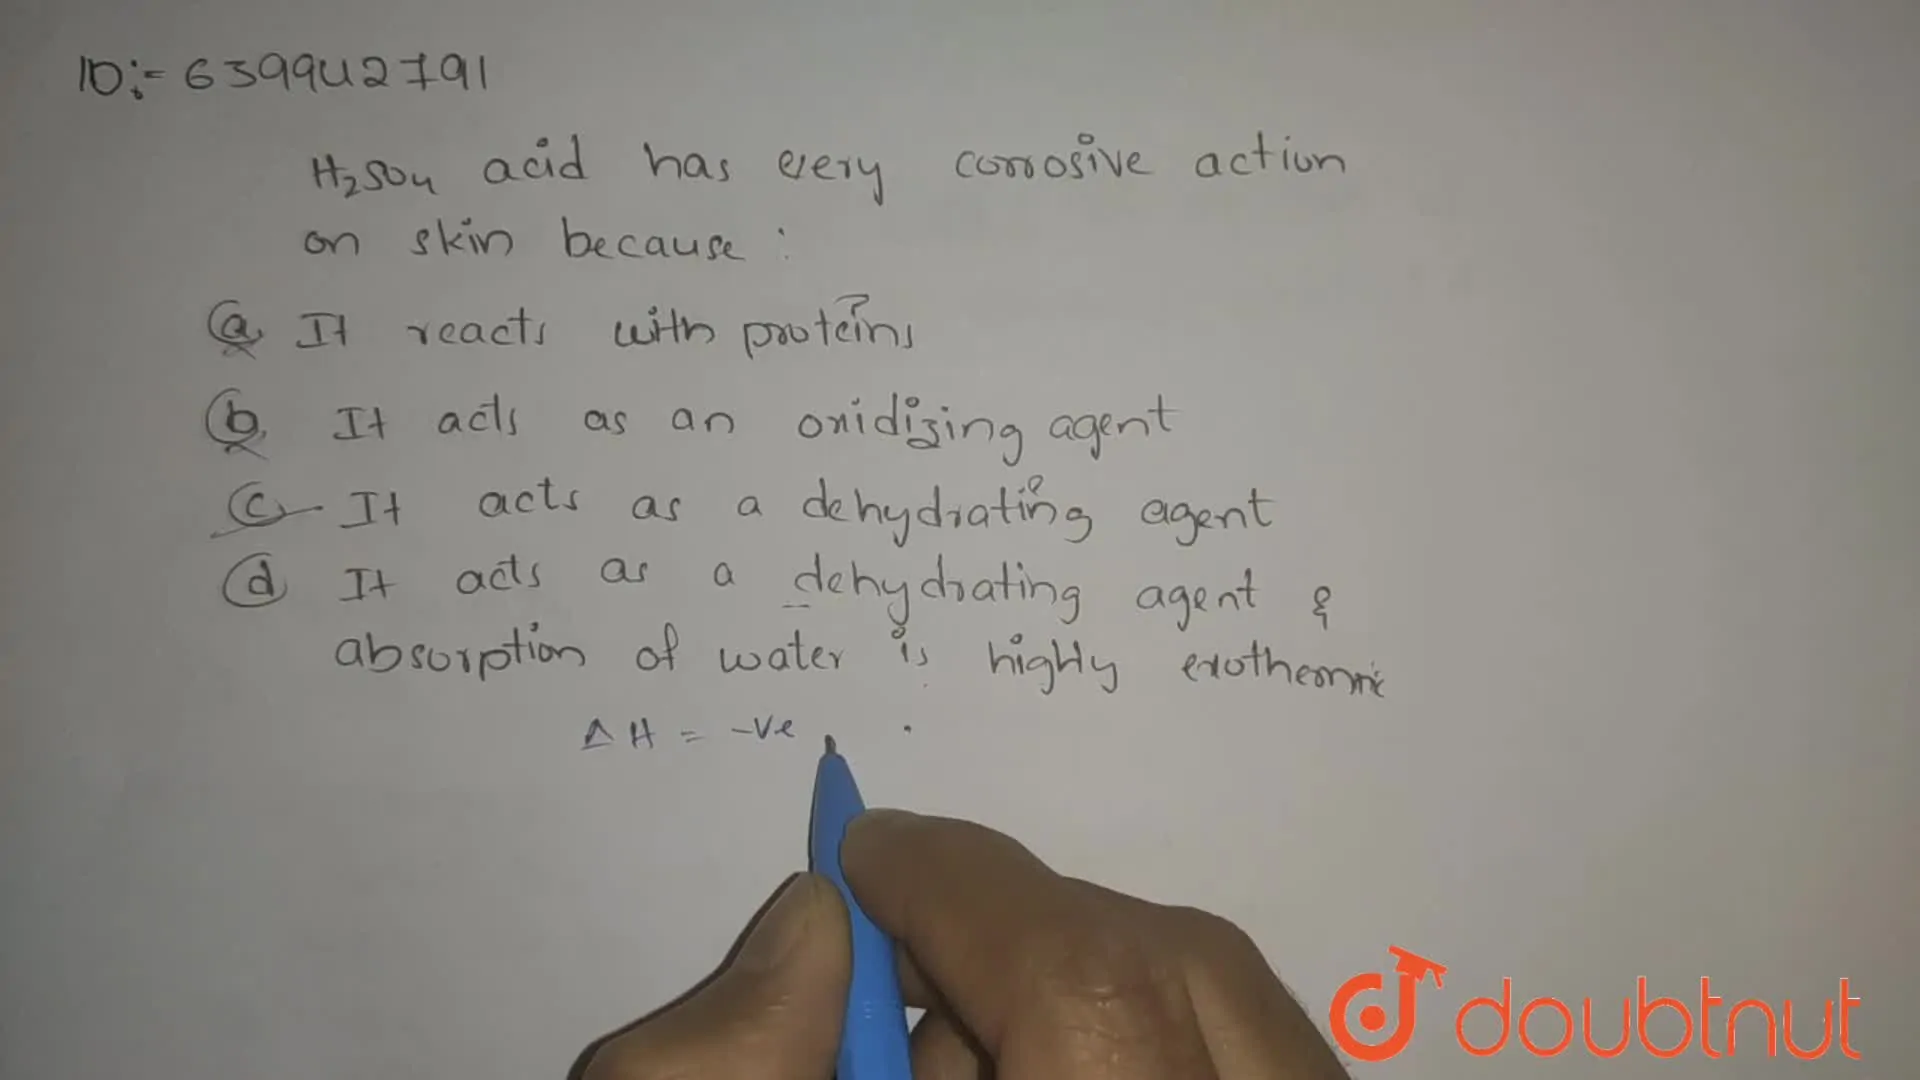 ID:- 639942791
H2SO4 acid has very corrosive action
on skin because :
(a) It reacts with proteins
(b) It acts as an oxidizing agent
(c) It acts as a dehydrating agent
(d) It acts as a dehydrating agent &
absorption of water is highly exothermic
ΔH = -ve
doubtnut